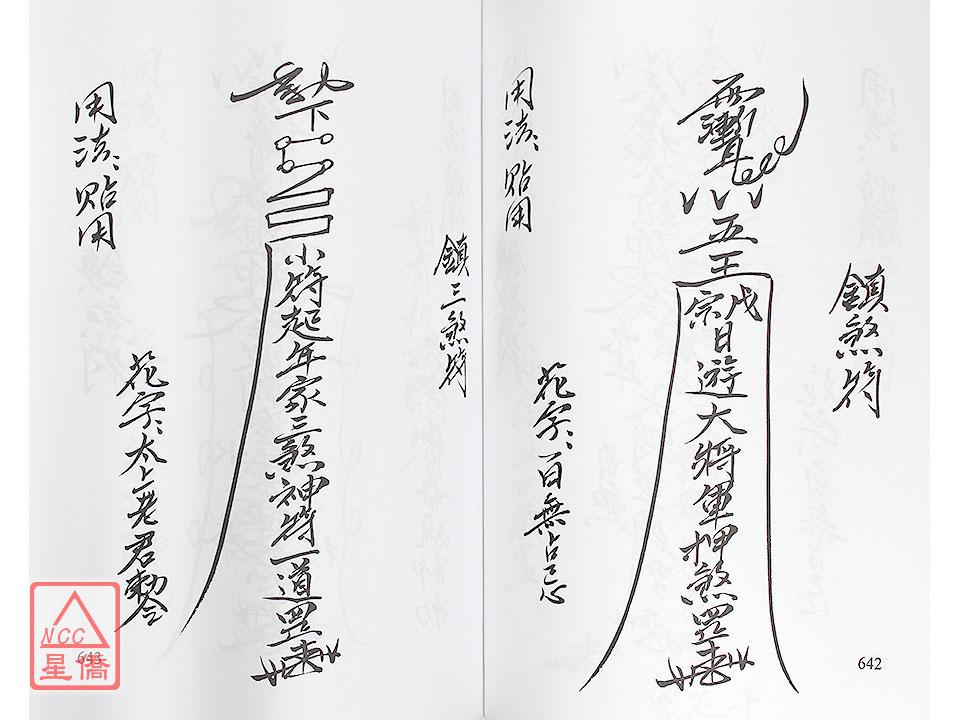 鎮煞符
五王
戊宗日遊大將軍押煞罡
用法：貼用
花字：百無占忌
642
鎮三煞符
符起年家三煞神符一道罡
用法：貼用
花字：太上老君勅令
643
NCC
星僑